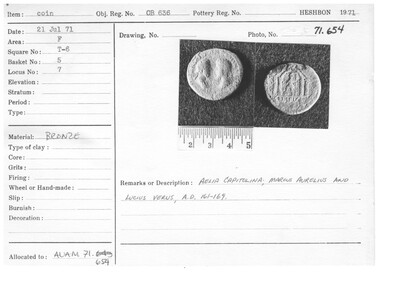 Item: coin Obj. Reg. No. OB 636 Pottery Reg. No. HESHBON 1971
Date: 21 Jul 71
Area: F
Square No: T-6
Basket No: 5
Locus No: 7
Elevation:
Stratum:
Period:
Type:
Drawing, No. Photo, No. 71.654
2 3 4 5
Material: BRONZE
Type of clay:
Core:
Grits:
Firing:
Wheel or Hand-made:
Slip:
Burnish:
Decoration:
Remarks or Description: AELIA CAPITOLINA, MARCUS AURELIUS AND
LUCIUS VERUS, A.D. 161-169.
Allocated to: AUAM. 71.
654